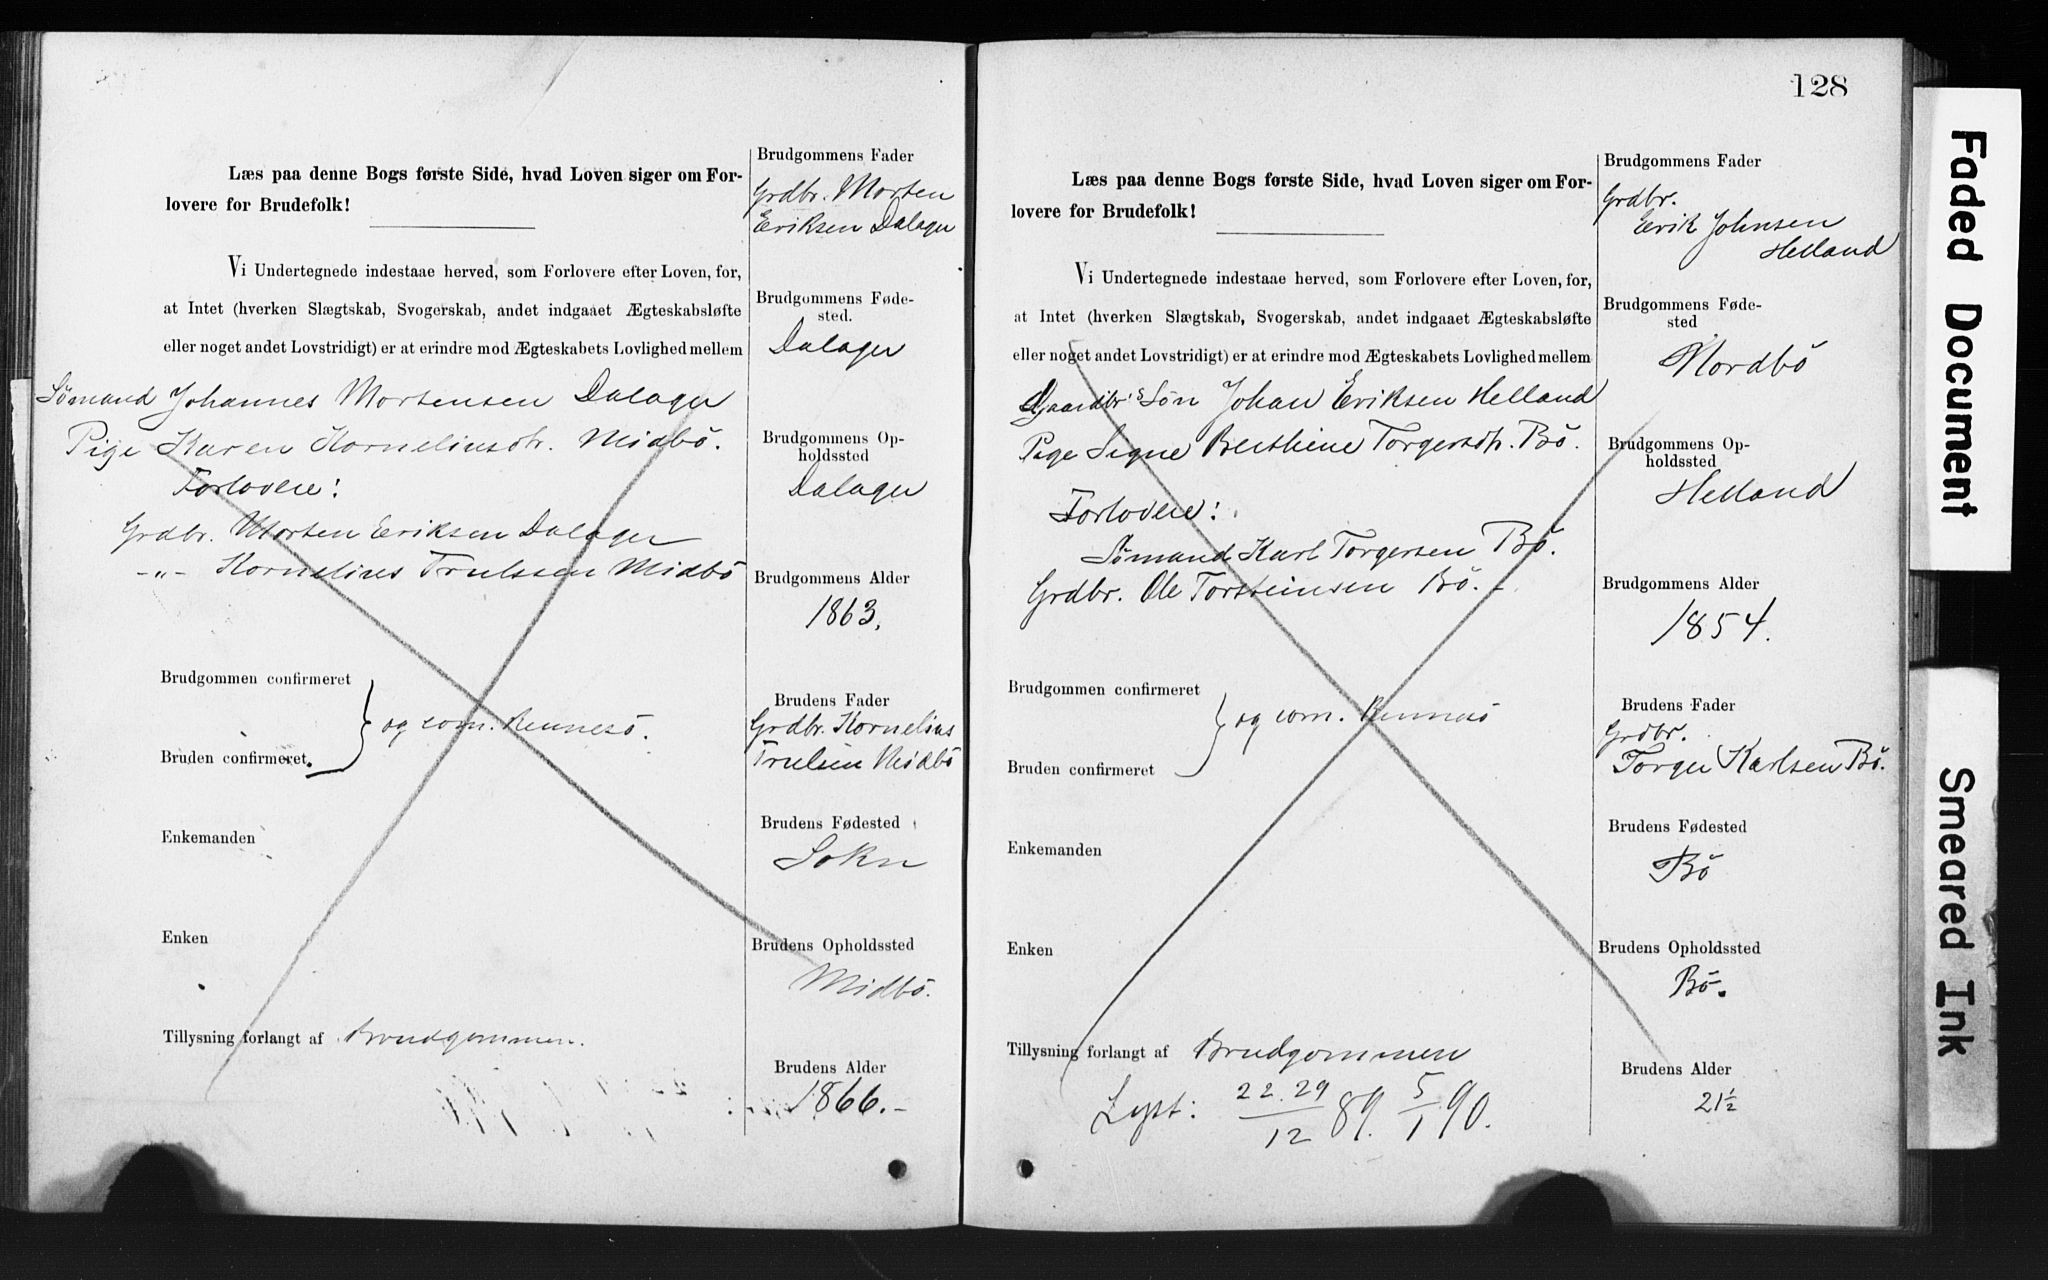 Læs paa denne Bogs første Side, hvad Loven siger om For-
lovere for Brudefolk!
Vi Undertegnede indestaae herved, som Forlovere efter Loven, for,
at Intet (hverken Slægtskab, Svogerskab, andet indgaaet Ægteskabsløfte
eller noget andet Lovstridigt) er at erindre mod Ægteskabets Lovlighed mellem
Sömand Johannes Mortensen Dalager
Pige Karen Korneliusdtr. Midbö.
Forlovere:
Grdbr. Morten Eriksen Dalager
-„- Kornelius Trulssen Midbö
Brudgommen confirmeret
og com. Rennesö.
Bruden confirmeret
Enkemanden
Enken
Tillysning forlangt af Brudgommen.
Brudgommens Fader
Grdbr. Morten
Eriksen Dalager
Brudgommens Føde-
sted.
Dalager
Brudgommens Op-
holdssted
Dalager
Brudgommens Alder
1863.
Brudens Fader
Grdbr. Kornelius
Trulsen Midbö
Brudens Fødested
Sokn
Brudens Opholdssted
Midbö.
Brudens Alder
1866.-
128
Læs paa denne Bogs første Side, hvad Loven siger om For-
lovere for Brudefolk!
Vi Undertegnede indestaae herved, som Forlovere efter Loven, for,
at Intet (hverken Slægtskab, Svogerskab, andet indgaaet Ægteskabsløfte
eller noget andet Lovstridigt) er at erindre mod Ægteskabets Lovlighed mellem
Gaardbr's Sön Johan Eriksen Helland
Pige Signe Berthine Torgersdtr. Bö.
Forlovere:
Sömand Karl Torgersen Bö.
Grdbr. Ole Torsteinsen Bö. -
Brudgommen confirmeret
og com. Rennesö
Bruden confirmeret
Enkemanden
Enken
Tillysning forlangt af Brudgommen
Lyst: 22.29/12 89. 5/1 90.
Brudgommens Fader
Grdbr.
Erik Johnsen
Helland
Brudgommens Føde-
sted
Nordbö
Brudgommens Op-
holdssted
Helland
Brudgommens Alder
1854.
Brudens Fader
Grdbr.
Torger Karlsen Bö.
Brudens Fødested
Bö
Brudens Opholdssted
Bö.
Brudens Alder
21½
Faded Document
Smeared Ink